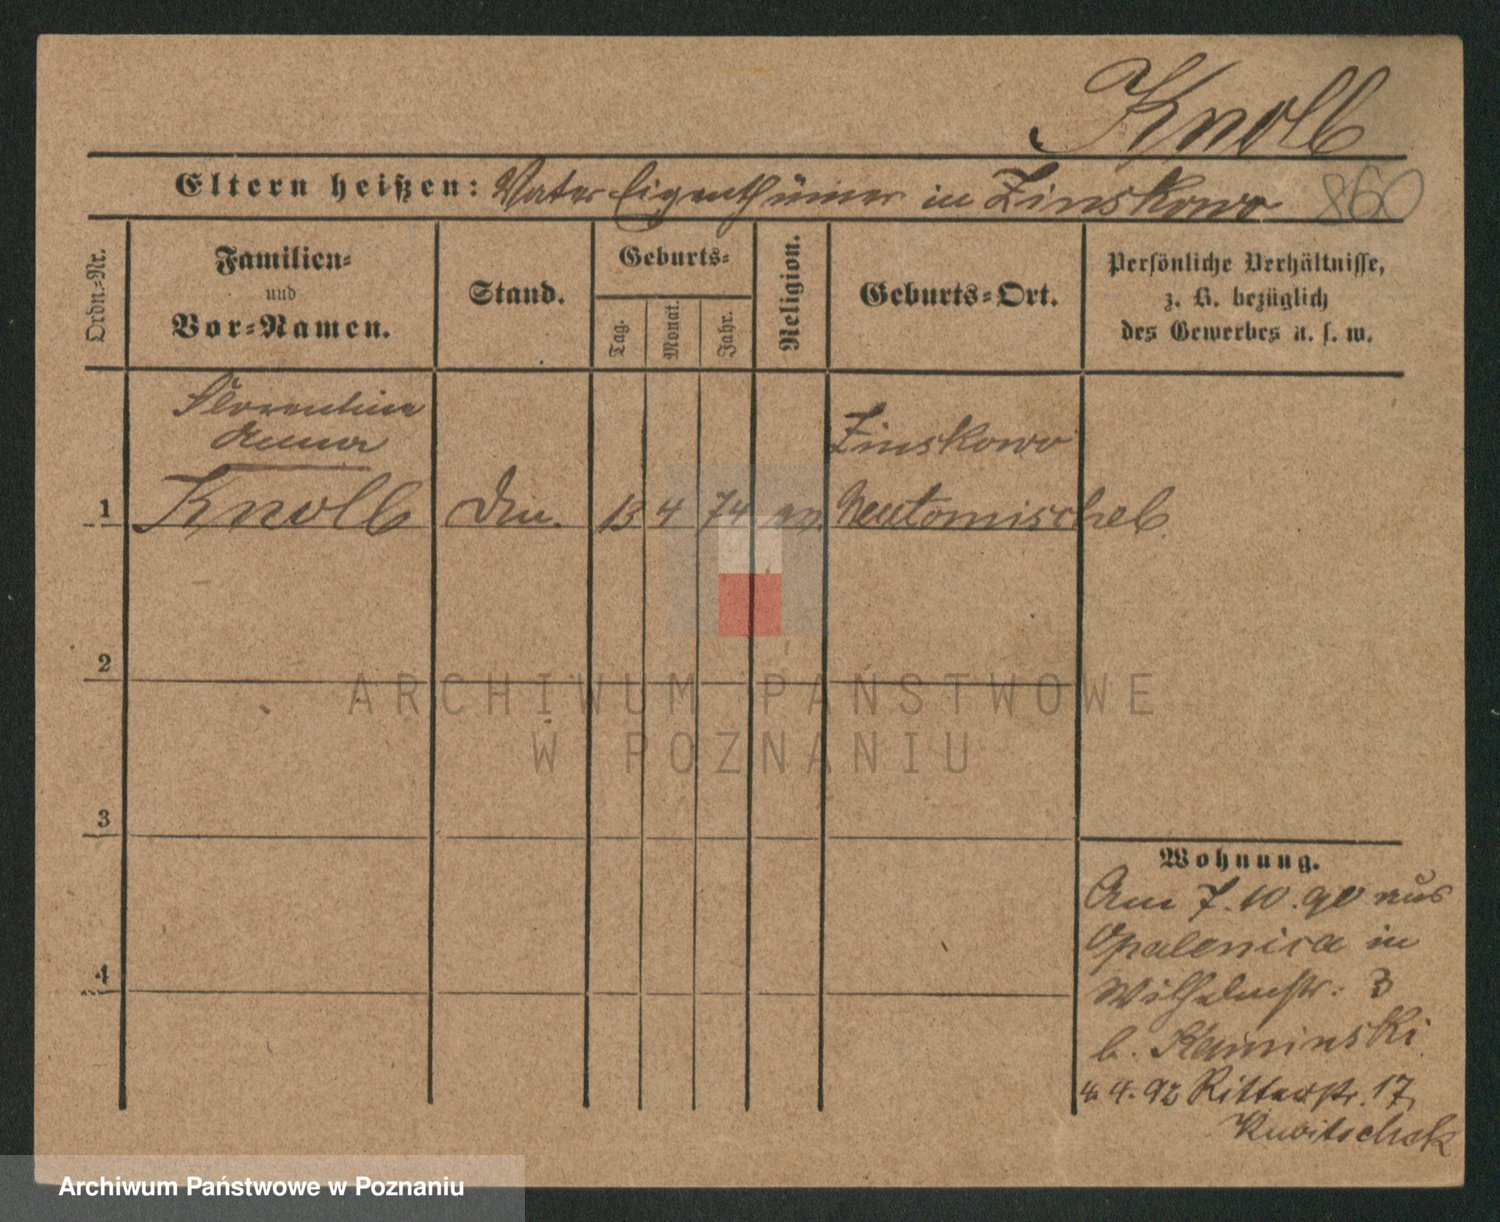 Knoll
Eltern heißen: Vater Eigenthümer in Zinskowo 860
Ordn.-Nr.
Familien-
und
Vor-Namen.
Stand.
Geburts-
Tag.
Monat.
Jahr.
Religion.
Geburts-Ort.
Persönliche Verhältnisse,
z. B. bezüglich
des Gewerbes u. s. w.
Florentine
Anna
Zinskowo
1 Knoll Din. 13 4 74 Neutomischel
2
ARCHIWUM PAŃSTWOWE
W POZNANIU
3
Wohnung.
Am 7.10.90 aus
Opalenica in
Wilhelmstr. 3
b. Kaminski
4.92 Ritterstr. 17
4
Archiwum Państwowe w Poznaniu